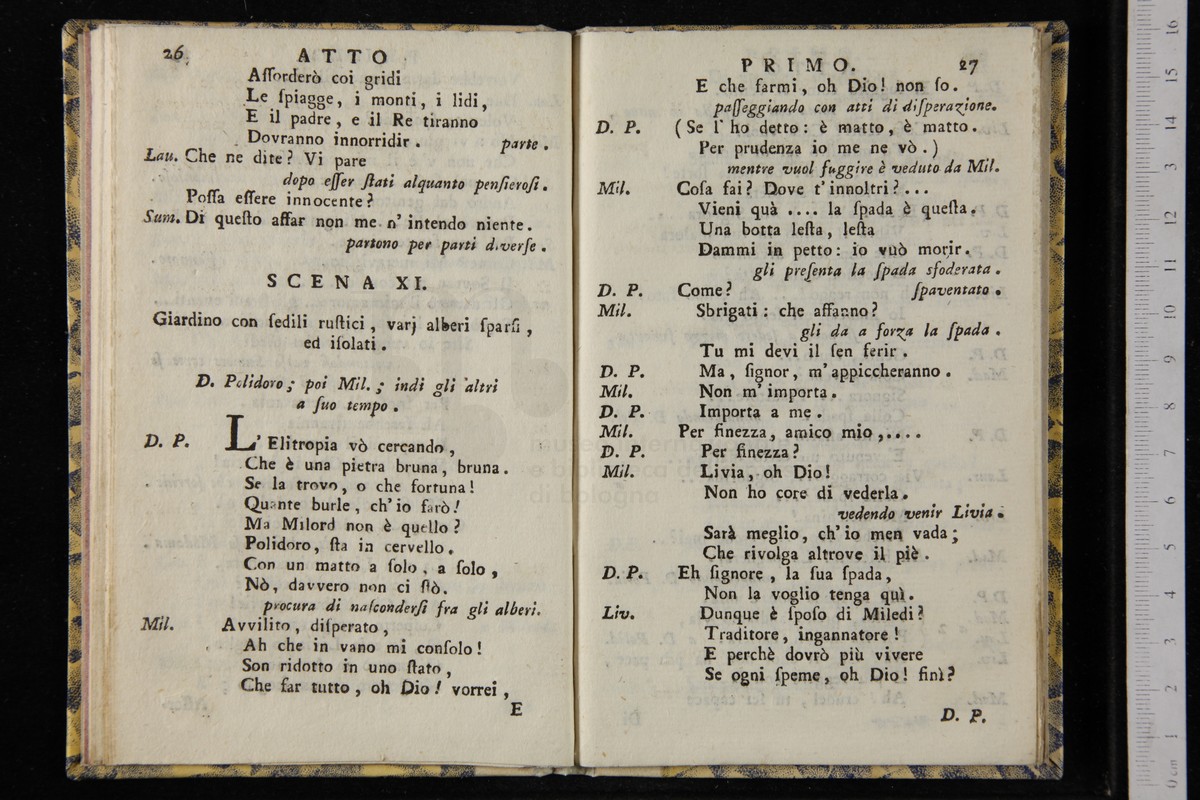 26. ATTO
Aſſorderò coi gridi
Le ſpiagge, i monti, i lidi,
E il padre, e il Re tiranno
Dovranno innorridir. parte.
Lau. Che ne dite? Vi pare
dopo eſſer ſtati alquanto penſieroſi.
Poſſa eſſere innocente?
Sum. Di queſto affar non me n' intendo niente.
partono per parti diverſe.
SCENA XI.
Giardino con ſedili ruſtici, varj alberi ſparſi,
ed iſolati.
D. Polidoro; poi Mil.; indi gli altri
a ſuo tempo.
D. P. L' Elitropia vò cercando,
Che è una pietra bruna, bruna.
Se la trovo, o che fortuna!
Quante burle, ch' io farò!
Ma Milord non è quello?
Polidoro, ſta in cervello.
Con un matto a ſolo, a ſolo,
Nò, davvero non ci ſtò.
procura di naſconderſi fra gli alberi.
Mil. Avvilito, diſperato,
Ah che in vano mi conſolo!
Son ridotto in uno ſtato,
Che far tutto, oh Dio! vorrei,
E
PRIMO. 27
E che farmi, oh Dio! non ſo.
paſſeggiando con atti di diſperazione.
D. P. (Se l' ho detto: è matto, è matto.
Per prudenza io me ne vò.)
mentre vuol fuggire è veduto da Mil.
Mil. Coſa fai? Dove t' innoltri?...
Vieni quà .... la ſpada è queſta.
Una botta leſta, leſta
Dammi in petto: io vuò morir.
gli preſenta la ſpada sfoderata.
D. P. Come? ſpaventato.
Mil. Sbrigati: che affanno?
gli da a forza la ſpada.
Tu mi devi il ſen ferir.
D. P. Ma, ſignor, m' appiccheranno.
Mil. Non m' importa.
D. P. Importa a me.
Mil. Per finezza, amico mio,....
D. P. Per finezza?
Mil. Livia, oh Dio!
Non ho core di vederla.
vedendo venir Livia.
Sarà meglio, ch' io men vada;
Che rivolga altrove il piè.
D. P. Eh ſignore, la ſua ſpada,
Non la voglio tenga quì.
Liv. Dunque è ſpoſo di Miledi?
Traditore, ingannatore!
E perchè dovrò più vivere
Se ogni ſpeme, oh Dio! finì?
D. P.